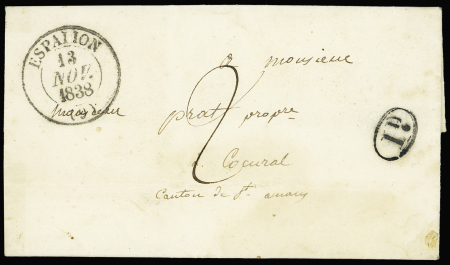 ESPALION
13
NOV.
1838
(11)
a monsieur
prat propre
2
a Cocural
Canton de St. amans
1D